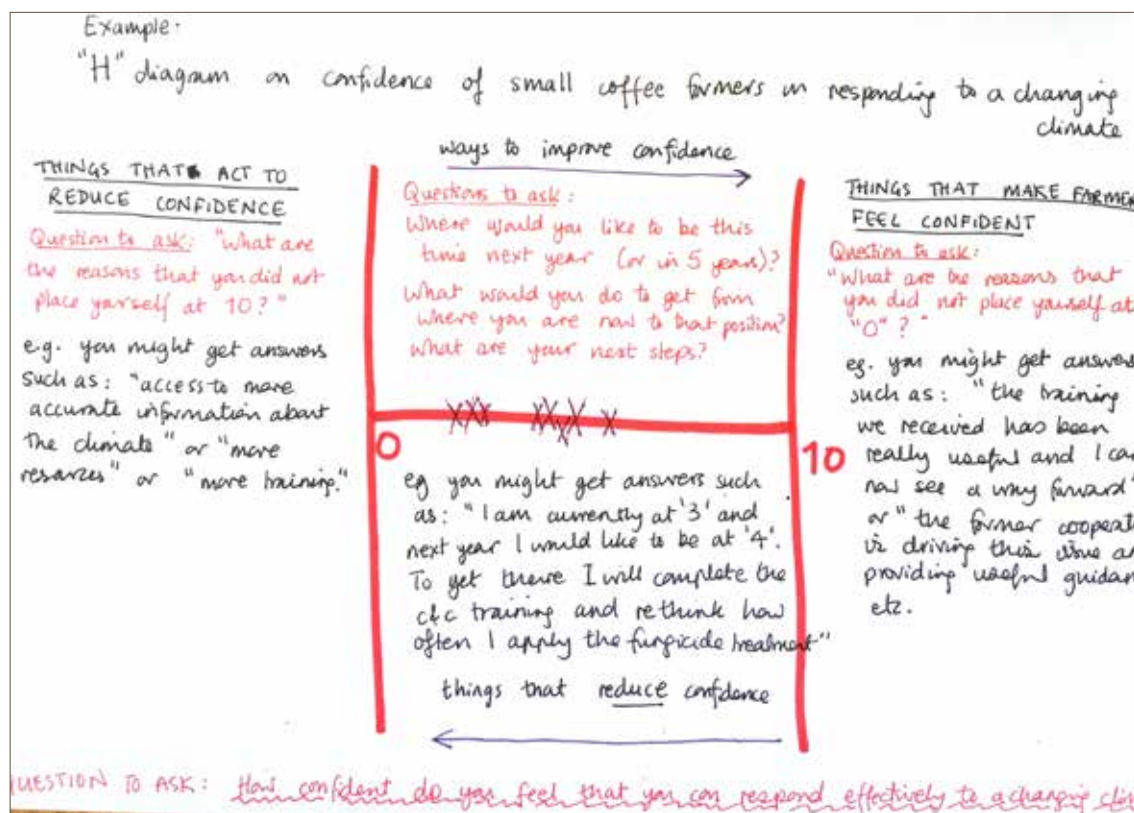 Example.
"H" diagram on confidence of small coffee farmers in responding to a changing
climate
THINGS THAT ACT TO
REDUCE CONFIDENCE
Question to ask: "What are
the reasons that you did not
place yourself at 10?"
e.g. you might get answers
such as: "access to more
accurate information about
the climate" or "more
resources" or "more training."
ways to improve confidence
Questions to ask:
Where would you like to be this
time next year (or in 5 years)?
What would you do to get from
where you are now to that position?
What are your next steps?
0
10
eg you might get answers such
as: "I am currently at '3' and
next year I would like to be at '4'.
To get there I will complete the
c&c training and rethink how
often I apply the fungicide treatment"
things that reduce confidence
THINGS THAT MAKE FARMER
FEEL CONFIDENT
Question to ask:
"What are the reasons that
you did not place yourself at
"0"?"
eg. you might get answers
such as: "the training
we received has been
really useful and I can
now see a way forward"
or "the farmer cooperat
is driving this issue an
providing useful guidan
etc.
UESTION TO ASK: How confident do you feel that you can respond effectively to a changing clim